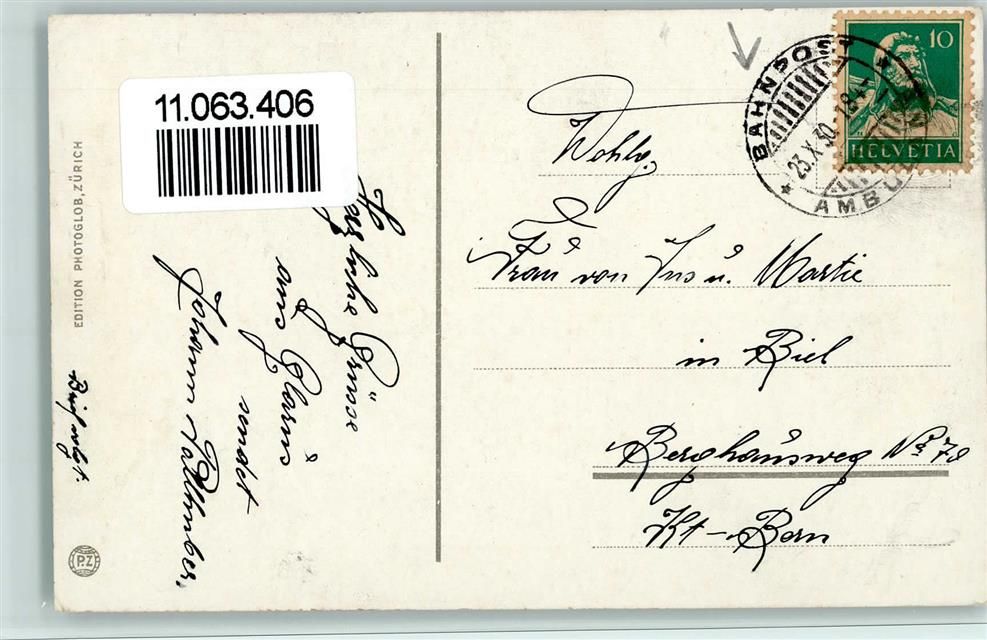 11.063.406
EDITION PHOTOGLOB, ZÜRICH
PZ
Herzliche Grüsse
aus Glarus
sendet
Johann
Brief folgt.
BAHNPOST
23.X.30.
AMBULANT
10
HELVETIA
Wohlg.
Frau von Ins u. Martie
in Biel
Berghausweg No 78
Kt-Bern